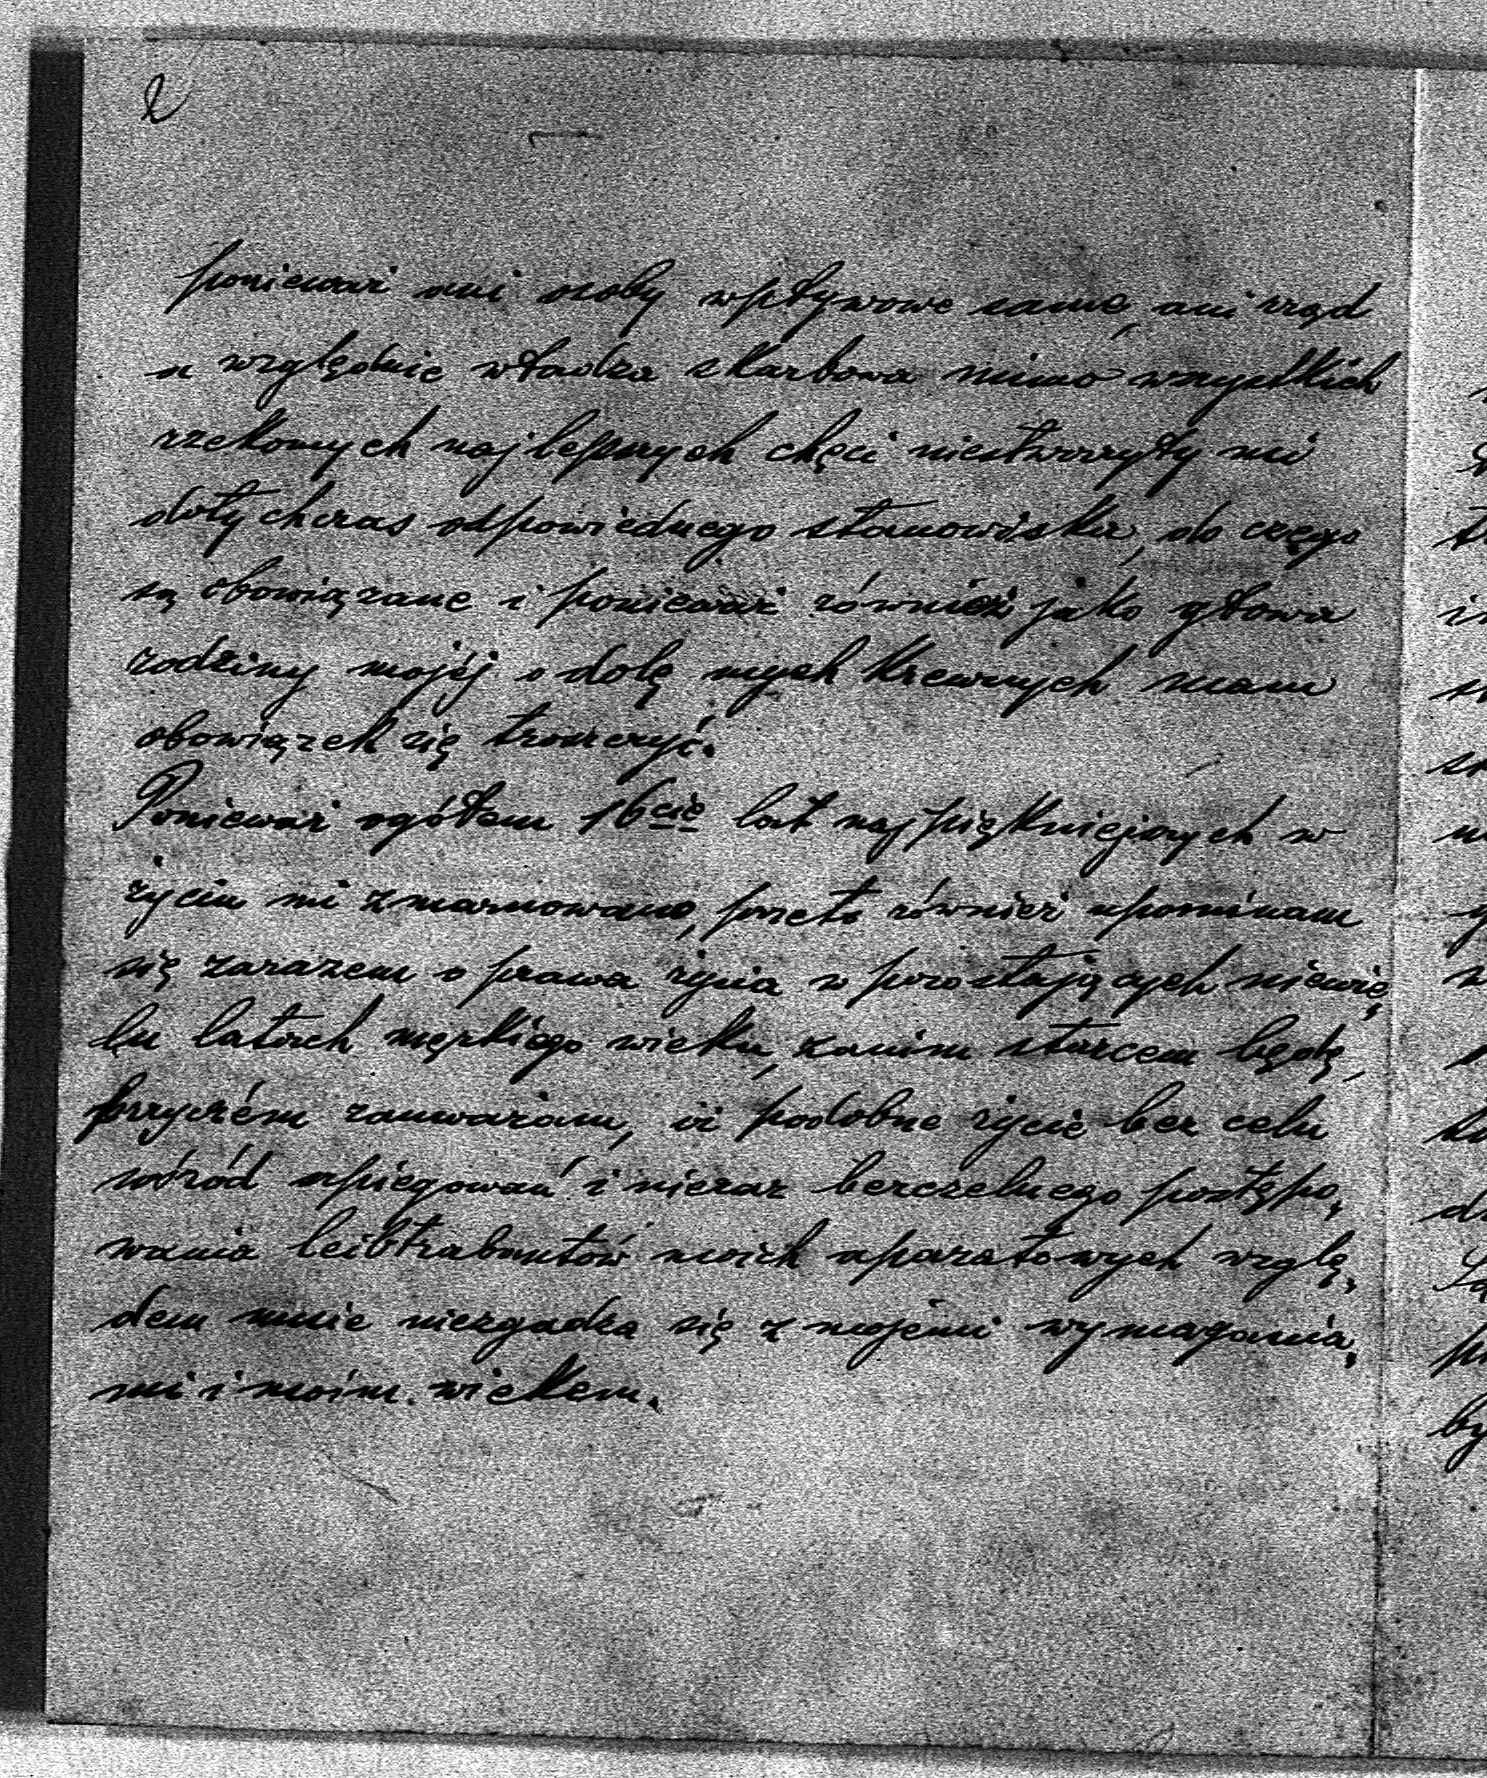 2
ponieważ ani osoby wpływowe same, ani rząd
a względnie władza skarbowa mimo wszystkich
rzekomych najlepszych chęci niestworzyły mi
dotychczas odpowiedniego stanowiska, do czego
są obowiązane i ponieważ również jako głowa
rodziny mojéj o dolę mych krewnych mam
obowiązek się troszczyć.
Ponieważ ogółem 16cie lat najpiękniejszych w
życiu mi zmarnowano, przeto również upominam
się zarazem o prawa życia w pozostających niewie
lu latach męskiego wieku, zanim starcem będę,
przyczém zauważam, iż podobne życie bez celu
wśród szpiegowań i nieraz bezczelnego postępo,
wania leibtrabantów moich aparatowych wzglę,
dem mnie niezgadza się z mojemi wymagania,
mi i moim wiekem.